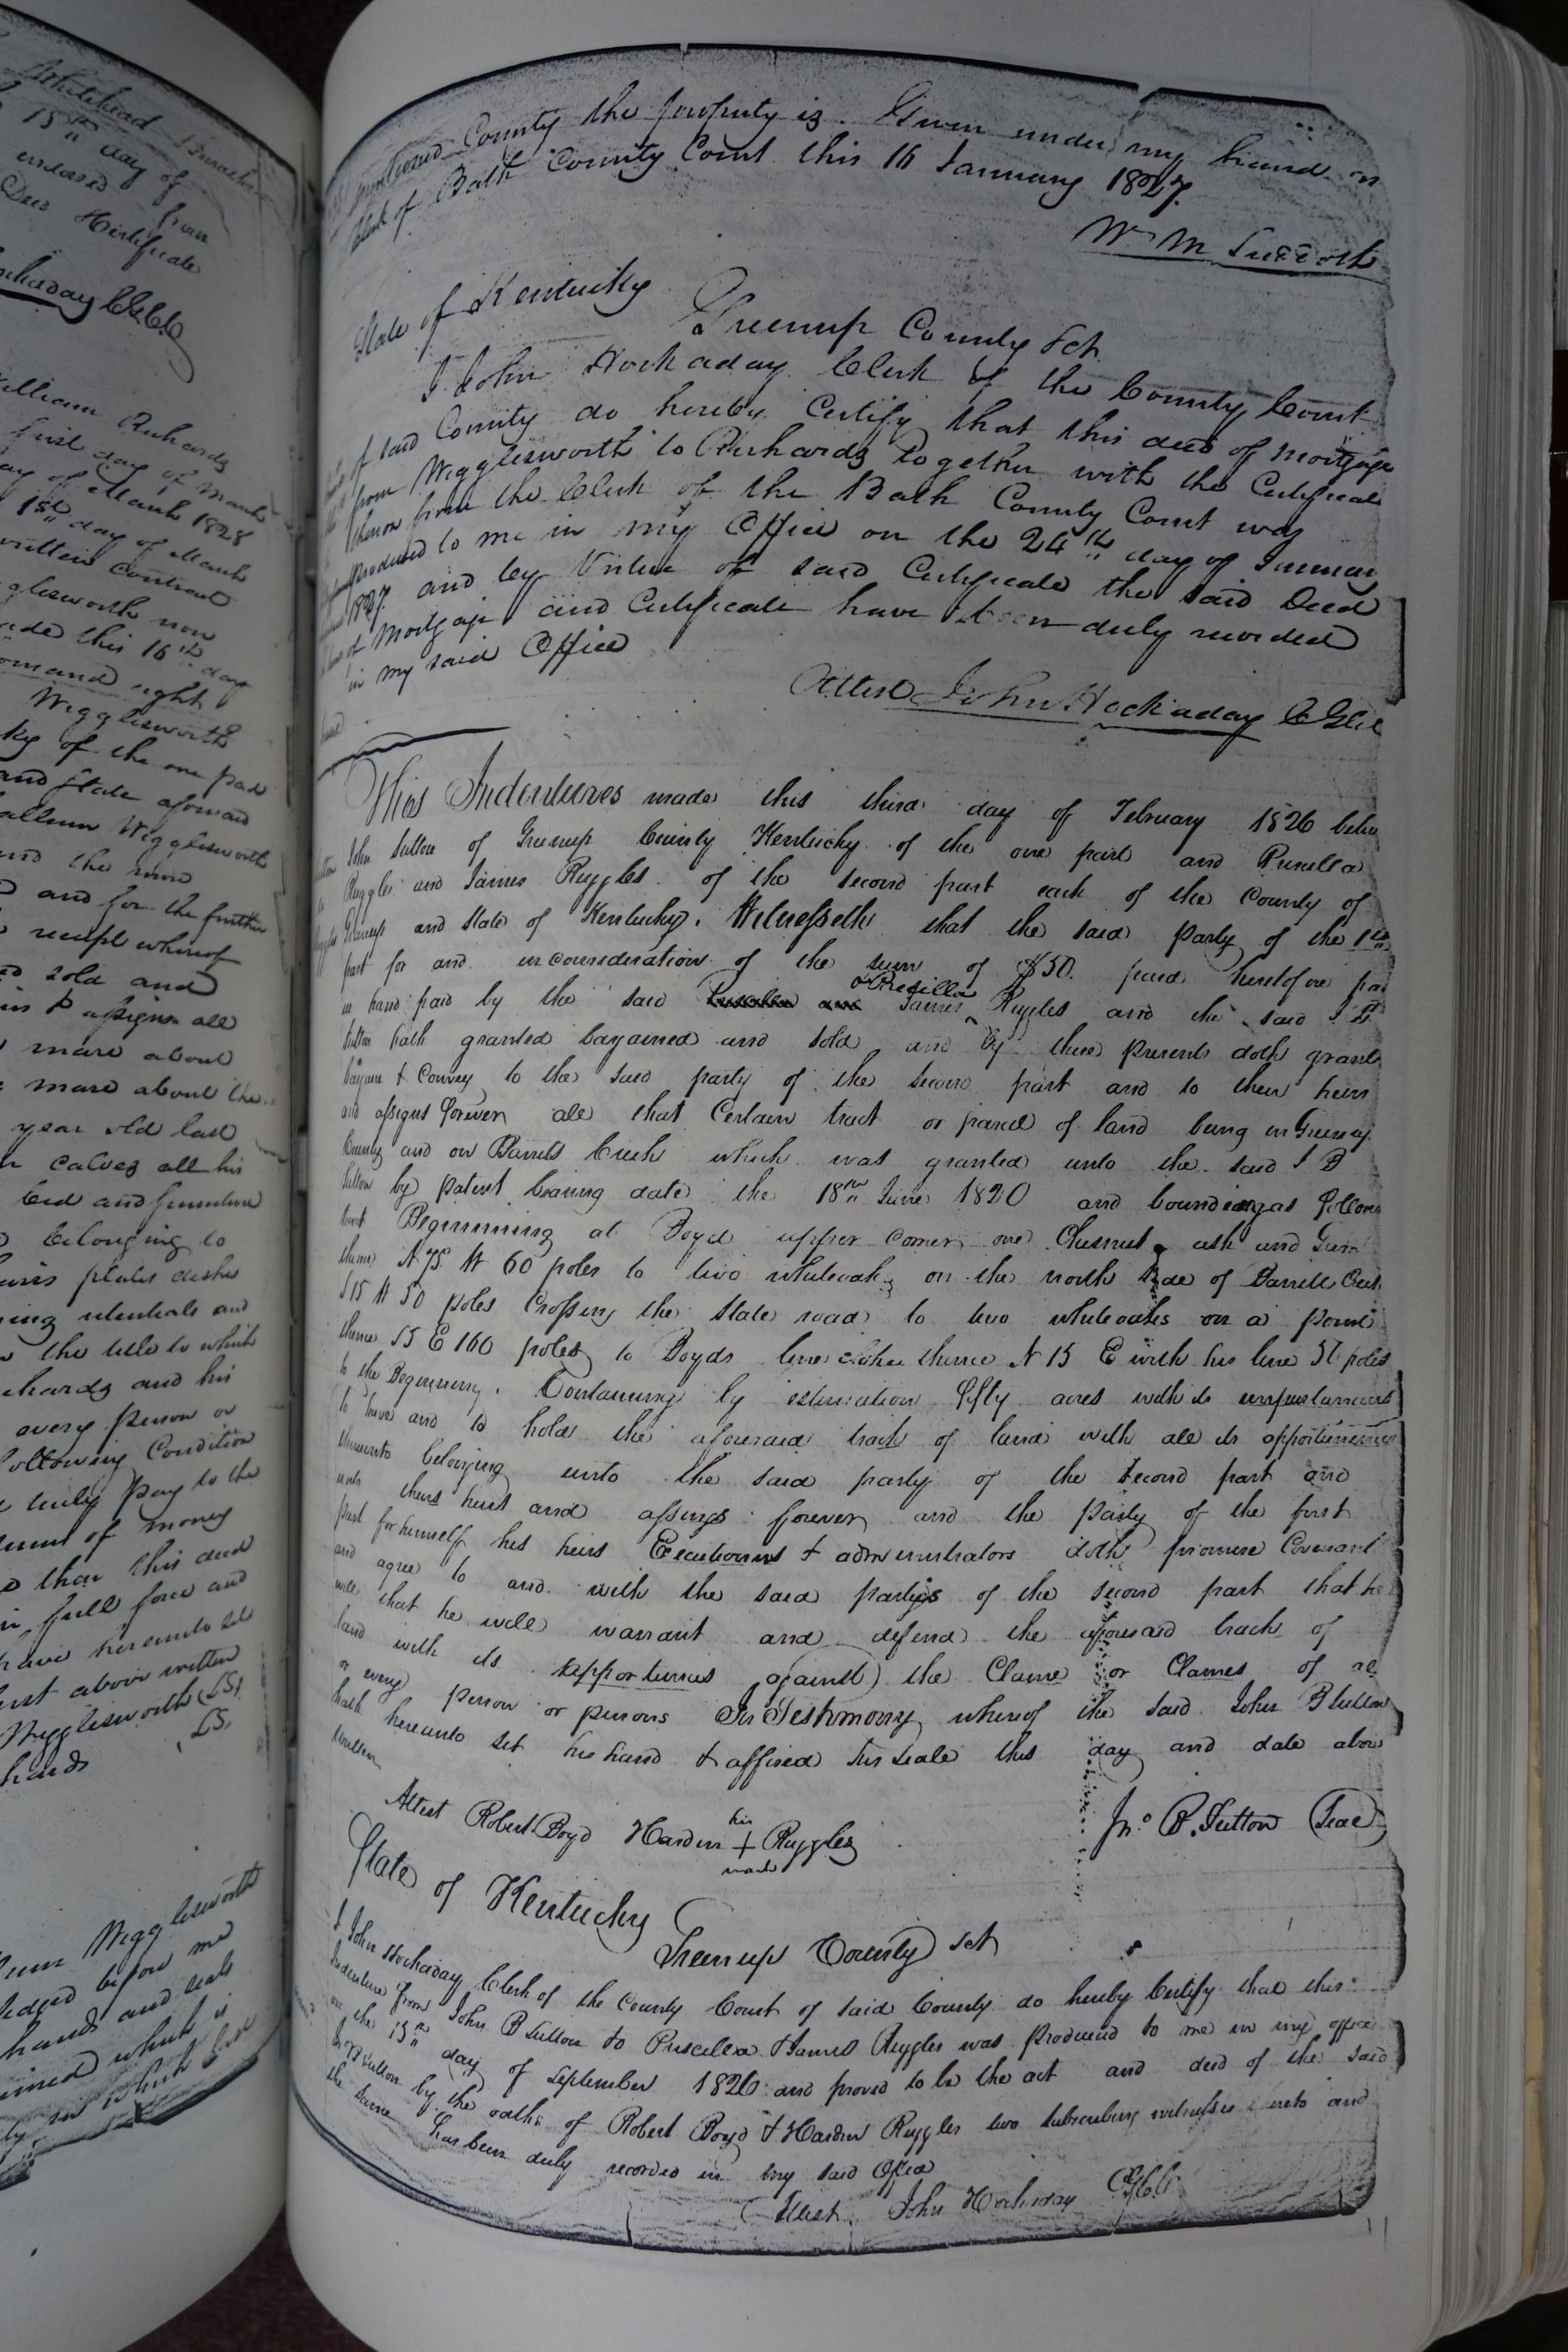 Whitehead
15th day of
endorsed from
Deed & Certificate
Hockaday C.G.C.C
William Richards
first day of March
day of March 1828
1st day of March
written Contract
glesworth now
this 16th day
right
Wigglesworth
ky of the one part
and State aforesaid
William Wigglesworth
and for the further
receipt whereof
sold and
assigns all
mare about
mare about the
year old last
calves all his
bed and furniture
belonging to
plates dishes
ing utentials and
the title to which
chards and his
every person or
following Condition
truly pay to the
ment of money
than this deed
in full force and
have hereunto set
first above written
Wigglesworth (LS)
LS
hards
Wigglesworth
ledged before me
hands and seals
County the property is. Given under my hand as
Clerk of Bath County Court this 16 January 1827.
Wm M Suddoth
State of Kentucky
Greenup County Sct
I John Hockaday Clerk of the County Court
of said County do hereby Certify that this deed of mortgage
from Wigglesworth to Richards together with the Certificate
thereon from the Clerk of the Bath County Court was
produced to me in my Office on the 24th day of January
1827. and by Virtue of said Certificate the said Deed
of Mortgage and Certificate have been duly recorded
in my said Office
Attest John Hockaday
This Indentures made this third day of February 1826 betw
John Sutton of Greenup County Kentucky of the one part and Pusilla
Ruggles and James Ruggles of the second part each of the County of
Greenup and State of Kentucky. Witnesseth that the said Party of the 1st
part for and in consideration of the sum of $50. paid heretofore
in hand paid by the said James Ruggles and the said
Sutton hath granted bargained and sold and by these presents doth grant
bargain & Convey to the said party of the second part and to their heirs
and assigns forever all that Certain tract or parcel of land being in Greenup
County and on Barrets Creek which was granted unto the said J B
Sutton by patent bearing date the 18th June 1820 and bounding as follows
towit Beginning at Boyd upper corner one Chesnut ash and Gum
thence N 75 W 60 poles to two whiteoaks on the north side of Barrett Creek
S 15 W 50 poles Crossing the State road to two whiteoaks on a point
thence S 5 E 160 poles to Boyds line thence N 15 E with his line 50 poles
to the Beginning. Containing by estimation fifty acres with its
to have and to hold the aforesaid track of land with all its
thereunto belonging unto the said party of the second part and
unto theirs heirs and assings forever and the party of the first
part for himself his heirs Executiorins & administrators doth promise Covenant
and agree to and with the said parties of the second part that he
will that he will warrant and defend the aforesaid track of
land with its apportunies against the Claime or Claimes of
or every person or persons In Testimony whereof the said John B Sutton
hath hereunto set his hand & affixed his seale this day and date above
written
Attest Robert Boyd Harden his + mark Ruggles
Jno B. Sutton (Seal)
State of Kentucky
Greenup County sct
I John Hockaday Clerk of the County Court of said County do hereby Certify that this
Indenture from John B Sutton to Puscella & James Ruggles was Produced to me in my office
on the 15th day of September 1826 and proved to be the act and deed of the said
Jno B Sutton by the oaths of Robert Boyd & Harden Ruggles two subscribing witnesses hereto and
the same has been duly recorded in my said Office
Attest. John Hockaday